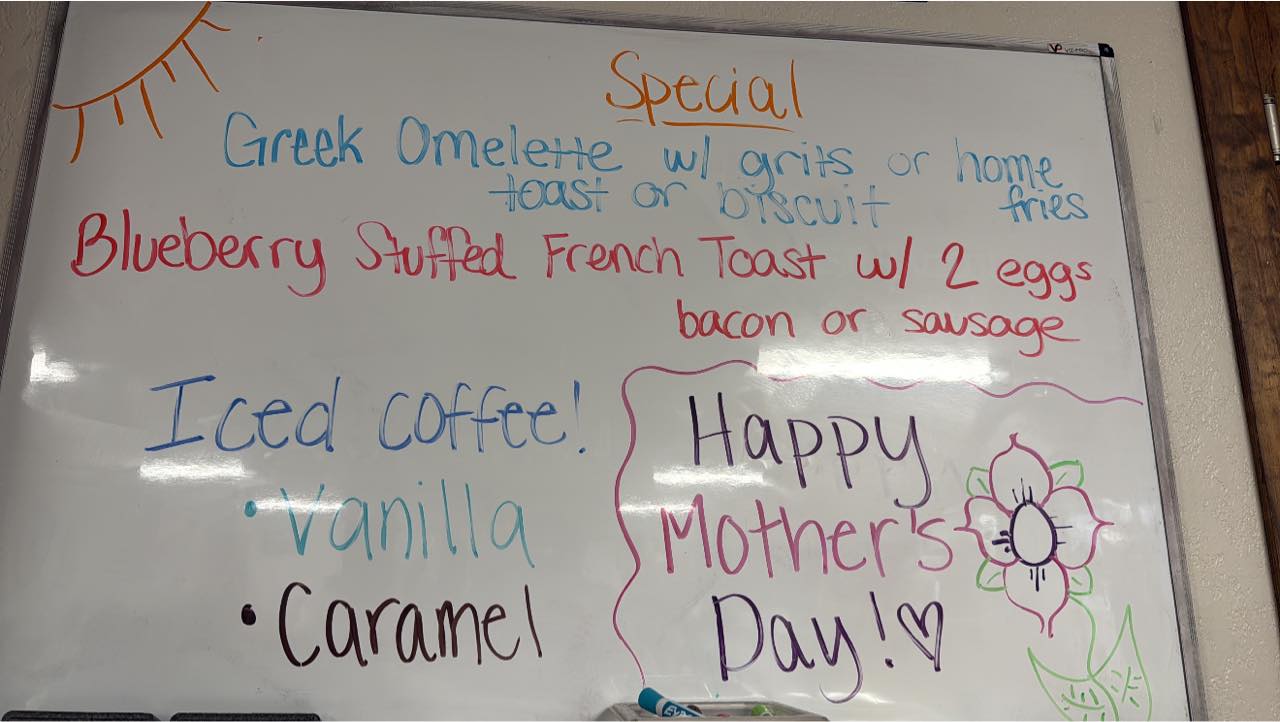 Special
Greek Omelette w/ grits or home fries
toast or biscuit
Blueberry Stuffed French Toast w/ 2 eggs
bacon or sausage
Iced coffee!
• Vanilla
• Caramel
Happy
Mother's
Day! ♡